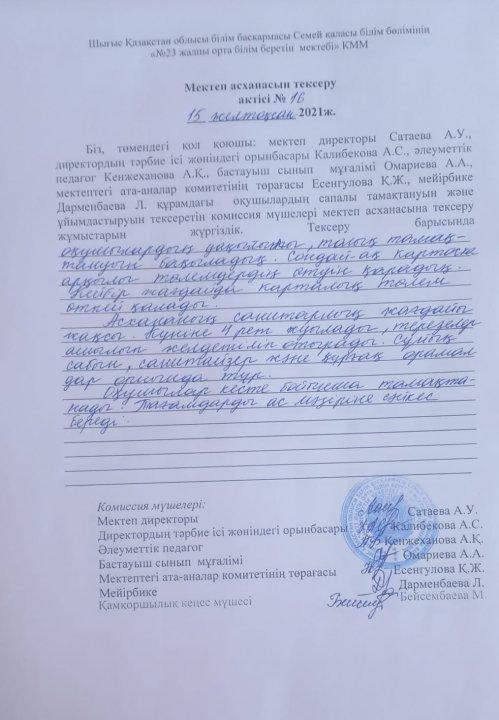 Шығыс Қазақстан облысы білім басқармасы Семей қаласы білім бөлімінің
«№23 жалпы орта білім беретін мектебі» КММ
Мектеп асханасын тексеру
актісі № 16
15 желтоқсан 2021ж.
Біз, төмендегі қол қоюшы: мектеп директоры Сатаева А.У.,
директордың тәрбие ісі жөніндегі орынбасары Калибекова А.С., әлеуметтік
педагог Кенжеханова А.Қ., бастауыш сынып мұғалімі Омариева А.А.,
мектептегі ата-аналар комитетінің төрағасы Есенгулова Қ.Ж., мейірбике
Дарменбаева Л. құрамдағы оқушылардың сапалы тамақтануын және
ұйымдастыруын тексеретін комиссия мүшелері мектеп асханасына тексеру
жұмыстарын жүргіздік. Тексеру барысында
оқушылардың уақылы, толық тамақ-
тануын бақыладық. Сондай-ақ картасы
арқылы төлемдердің өтуін қарадық.
Кейбір жағдайда карталық төлем
өтпей қалады.
Асхананың санитарлық жағдайы
жақсы. Күніне 4 рет жуылады, терезелер
ашылып желдетіліп отырады. Сұйық
сабын, санитайзер және құрғақ орамал
дар орнында тұр.
Оқушылар кесте бойынша тамақта-
нады. Тағамдарды ас мәзіріне сәйкес
береді.
Комиссия мүшелері:
Мектеп директоры Сатаева А.У.
Директордың тәрбие ісі жөніндегі орынбасары Калибекова А.С.
Әлеуметтік педагог Кенжеханова А.Қ.
Бастауыш сынып мұғалімі Омариева А.А.
Мектептегі ата-аналар комитетінің төрағасы Есенгулова Қ.Ж.
Мейірбике Дарменбаева Л.
Қамқоршылық кеңес мүшесі Бейсембаева М.